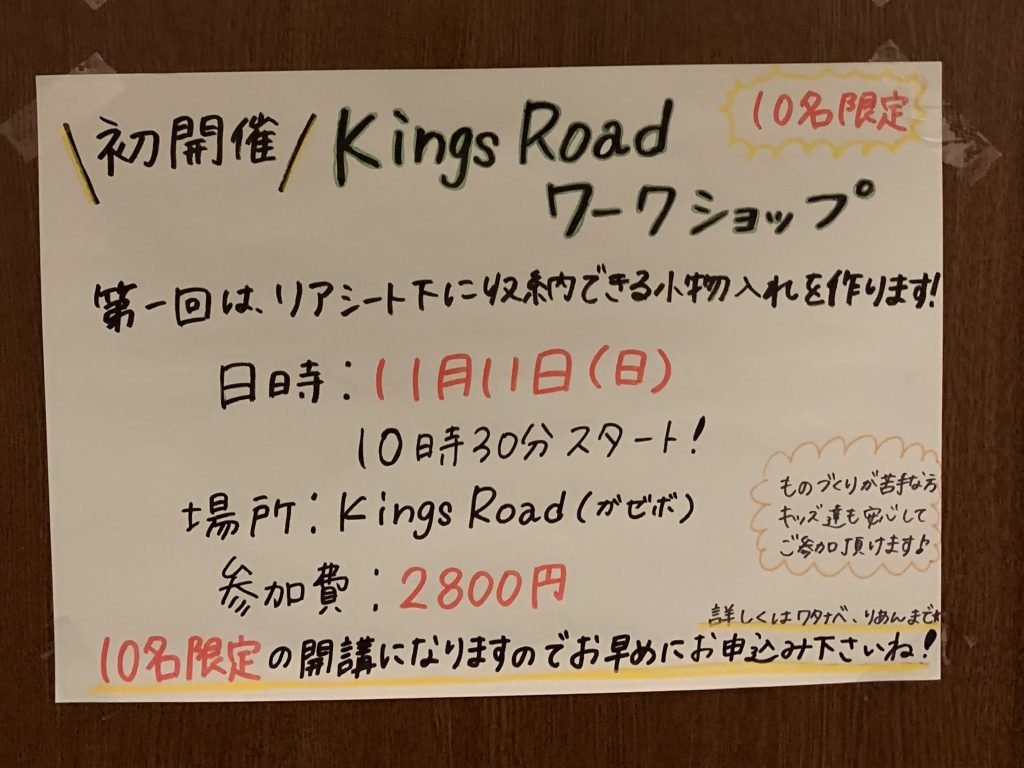 \初開催/ Kings Road
10名限定
ワークショップ
第一回は、リアシート下に収納できる小物入れを作ります!
日時：11月11日(日)
10時30分スタート!
場所：Kings Road(ガゼボ)
ものづくりが苦手な方
キッズ達も安心して
ご参加頂けます♪
参加費：2800円
詳しくはワタナベ、りあんまで★
10名限定の開講になりますのでお早めにお申込み下さいね!